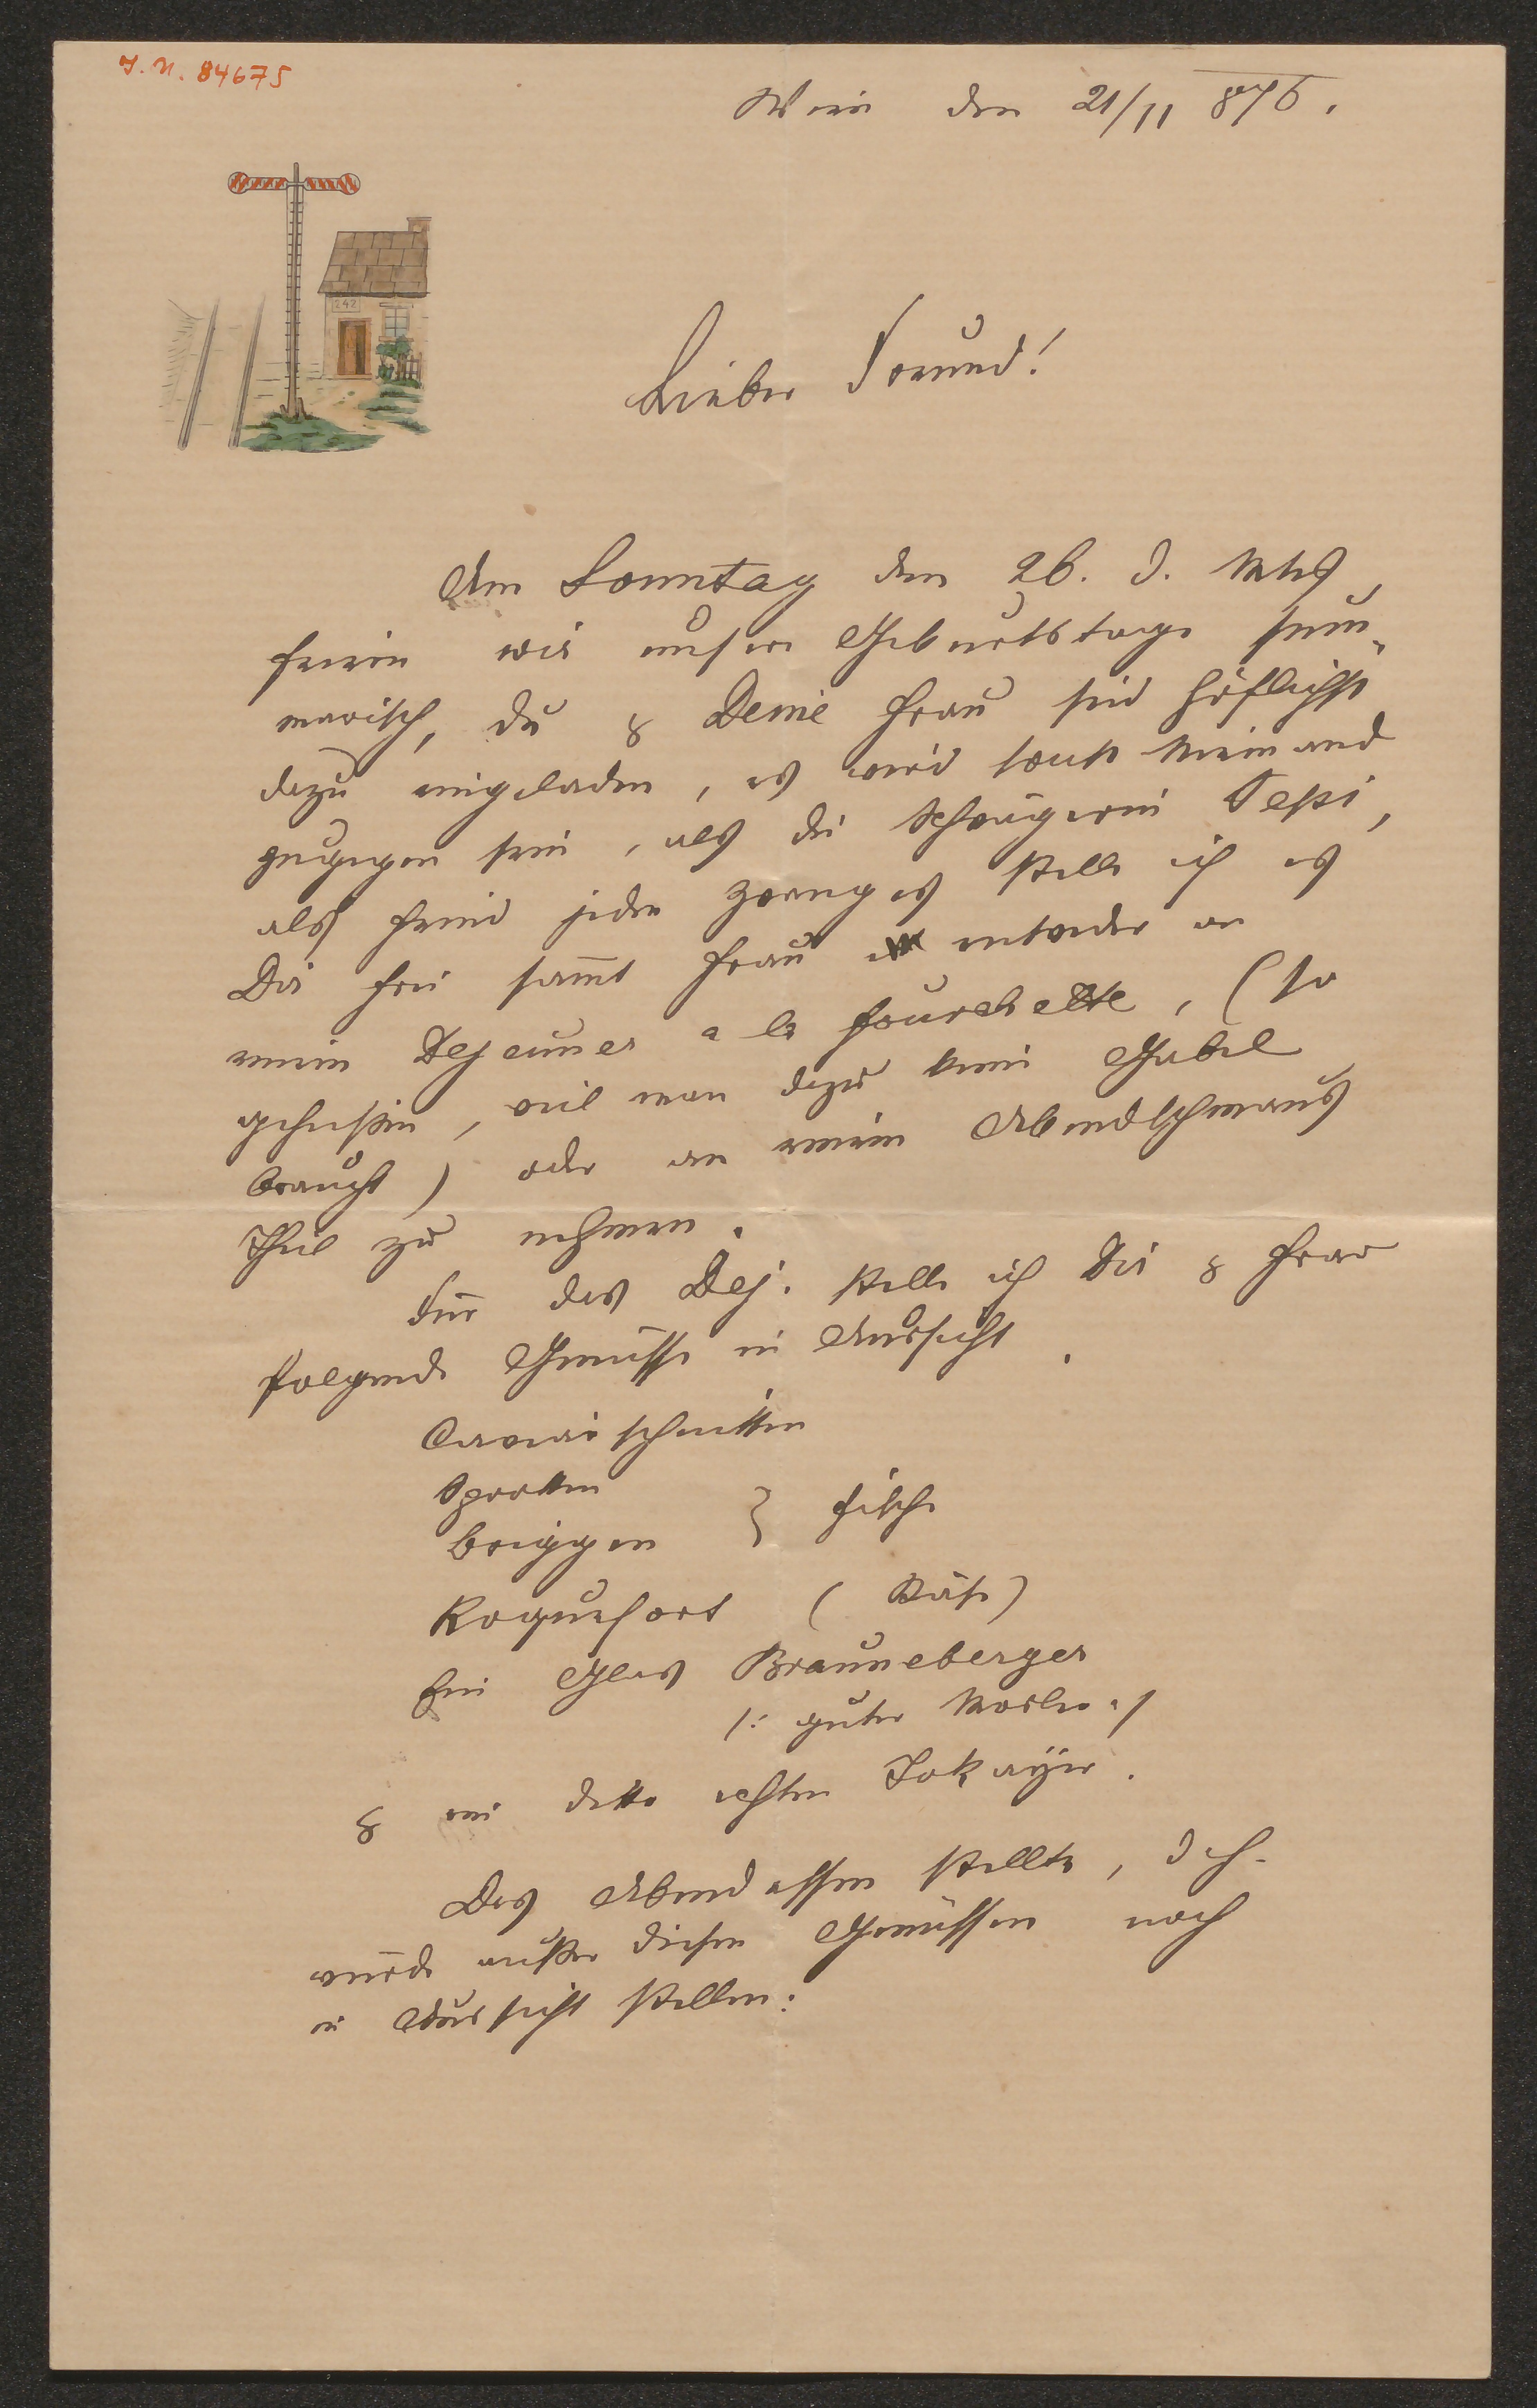 I. N. 84675
Wien den 21/11 876.
242
Lieber Freund!
Am Sonntag den 26. d. Mts,
feiern wir unsere Geburtstage sum-
marisch, Du & Deine Frau sind höflichst
dazu eingeladen, es wird sonst Niemand
zugegen sein, als die Schwägerin Pepi,
als Feind jeden Zwanges stelle ich es
Dir frei sammt Frau entweder an
einem Dejeuner a la fourchette, (so
geheißen, weil man dazu keine Gabel
braucht) oder an einem Abendschmaus
Theil zu nehmen.
Für das Dej. stelle ich Dir & Frau
folgende Genüsse in Aussicht.
Caviarschnitten
Sprotten
Briggen } Fische
Roquefort (Käse)
Ein Glas Brauneberger
/: guter Mosler :/
& ein detto echten Tokayer.
Das Abendessen stellte, d. h.
würde außer diesen Genüssen noch
in Aussicht stellen: